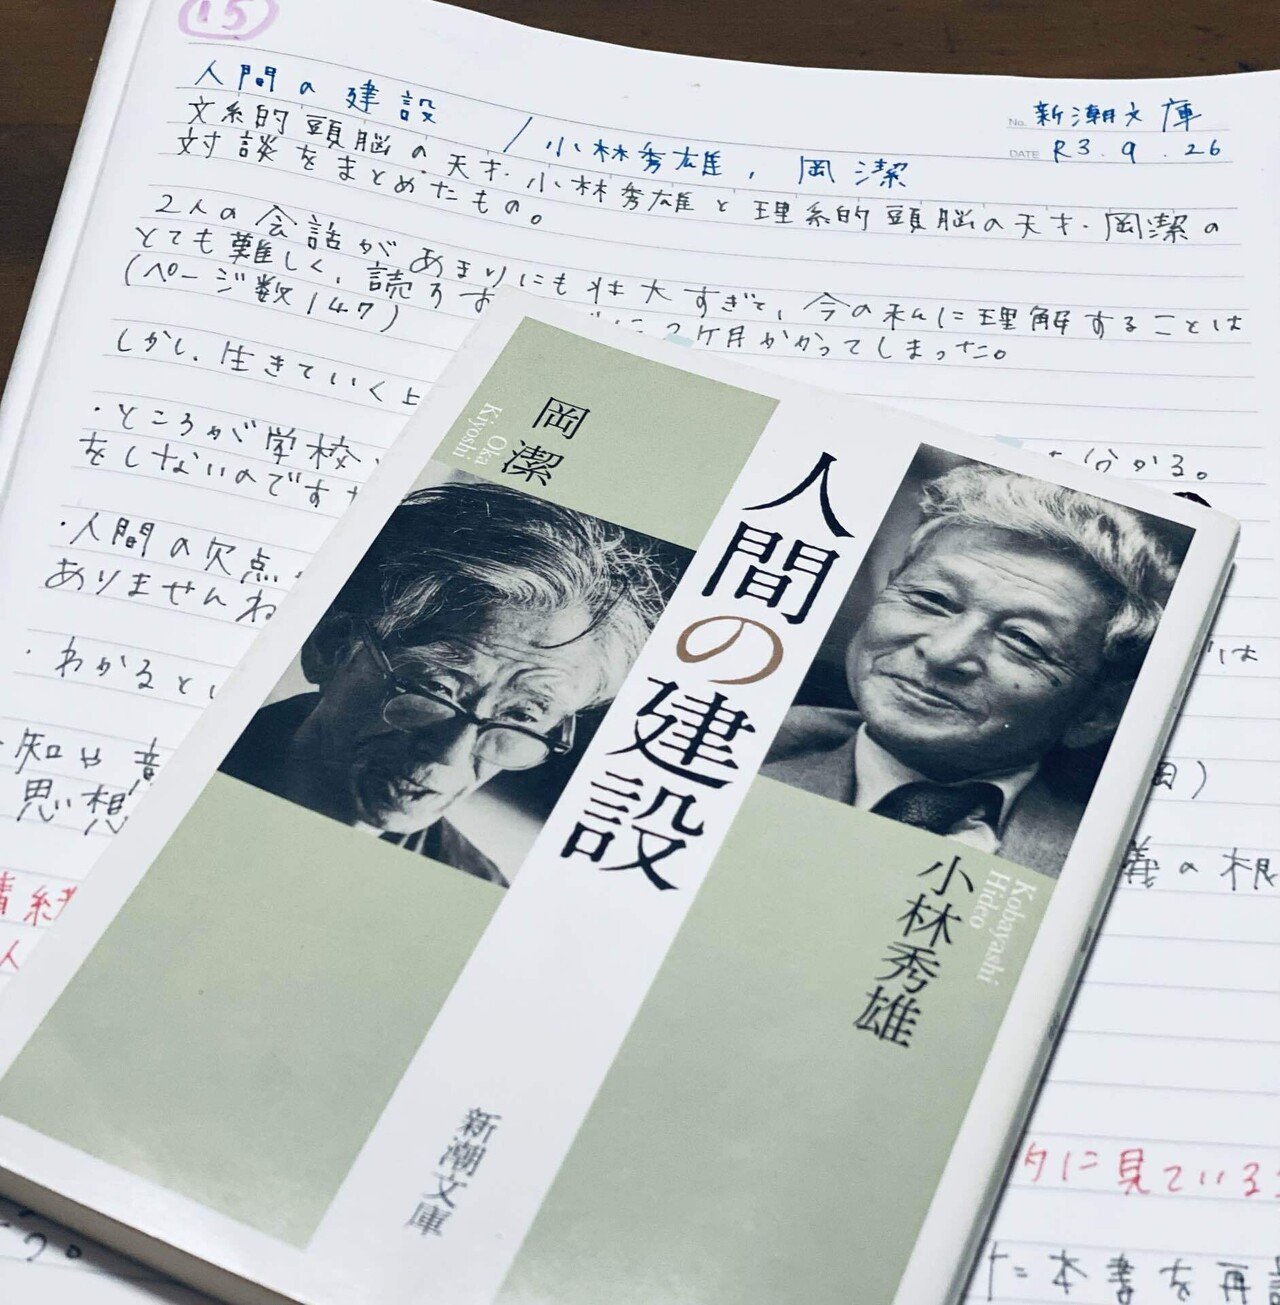 15
人間の建設 / 小林秀雄, 岡潔
No. 新潮文庫
DATE R3.9.26
文系的頭脳の天才・小林秀雄と理系的頭脳の天才・岡潔の
対談をまとめたもの。
2人の会話があまりにも壮大すぎて、今の私に理解することは
とても難しく、読
2ケ月かかってしまった。
(ページ数147)
しかし、生きていく上
分かる。
・ところが学校
をしないのです
・人間の欠点
ありませんね
は
・わかるとい
・知や意
思想
義の根
情緒
人
に見ている
た本書を再読
岡潔
Oka
Kiyoshi
人間の建設
小林秀雄
Kobayashi
Hideo
新潮文庫